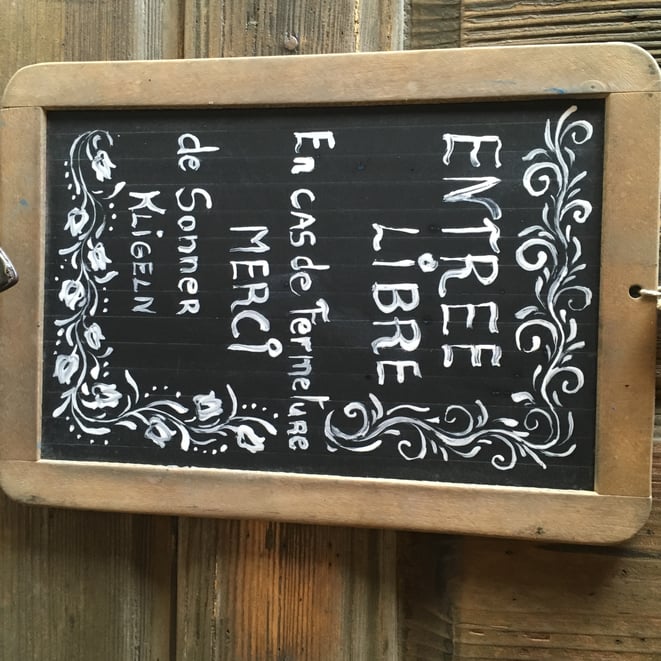 ENTREE
LIBRE
En CAS de Fermeture
MERCi
de Sonner
KLiGELN